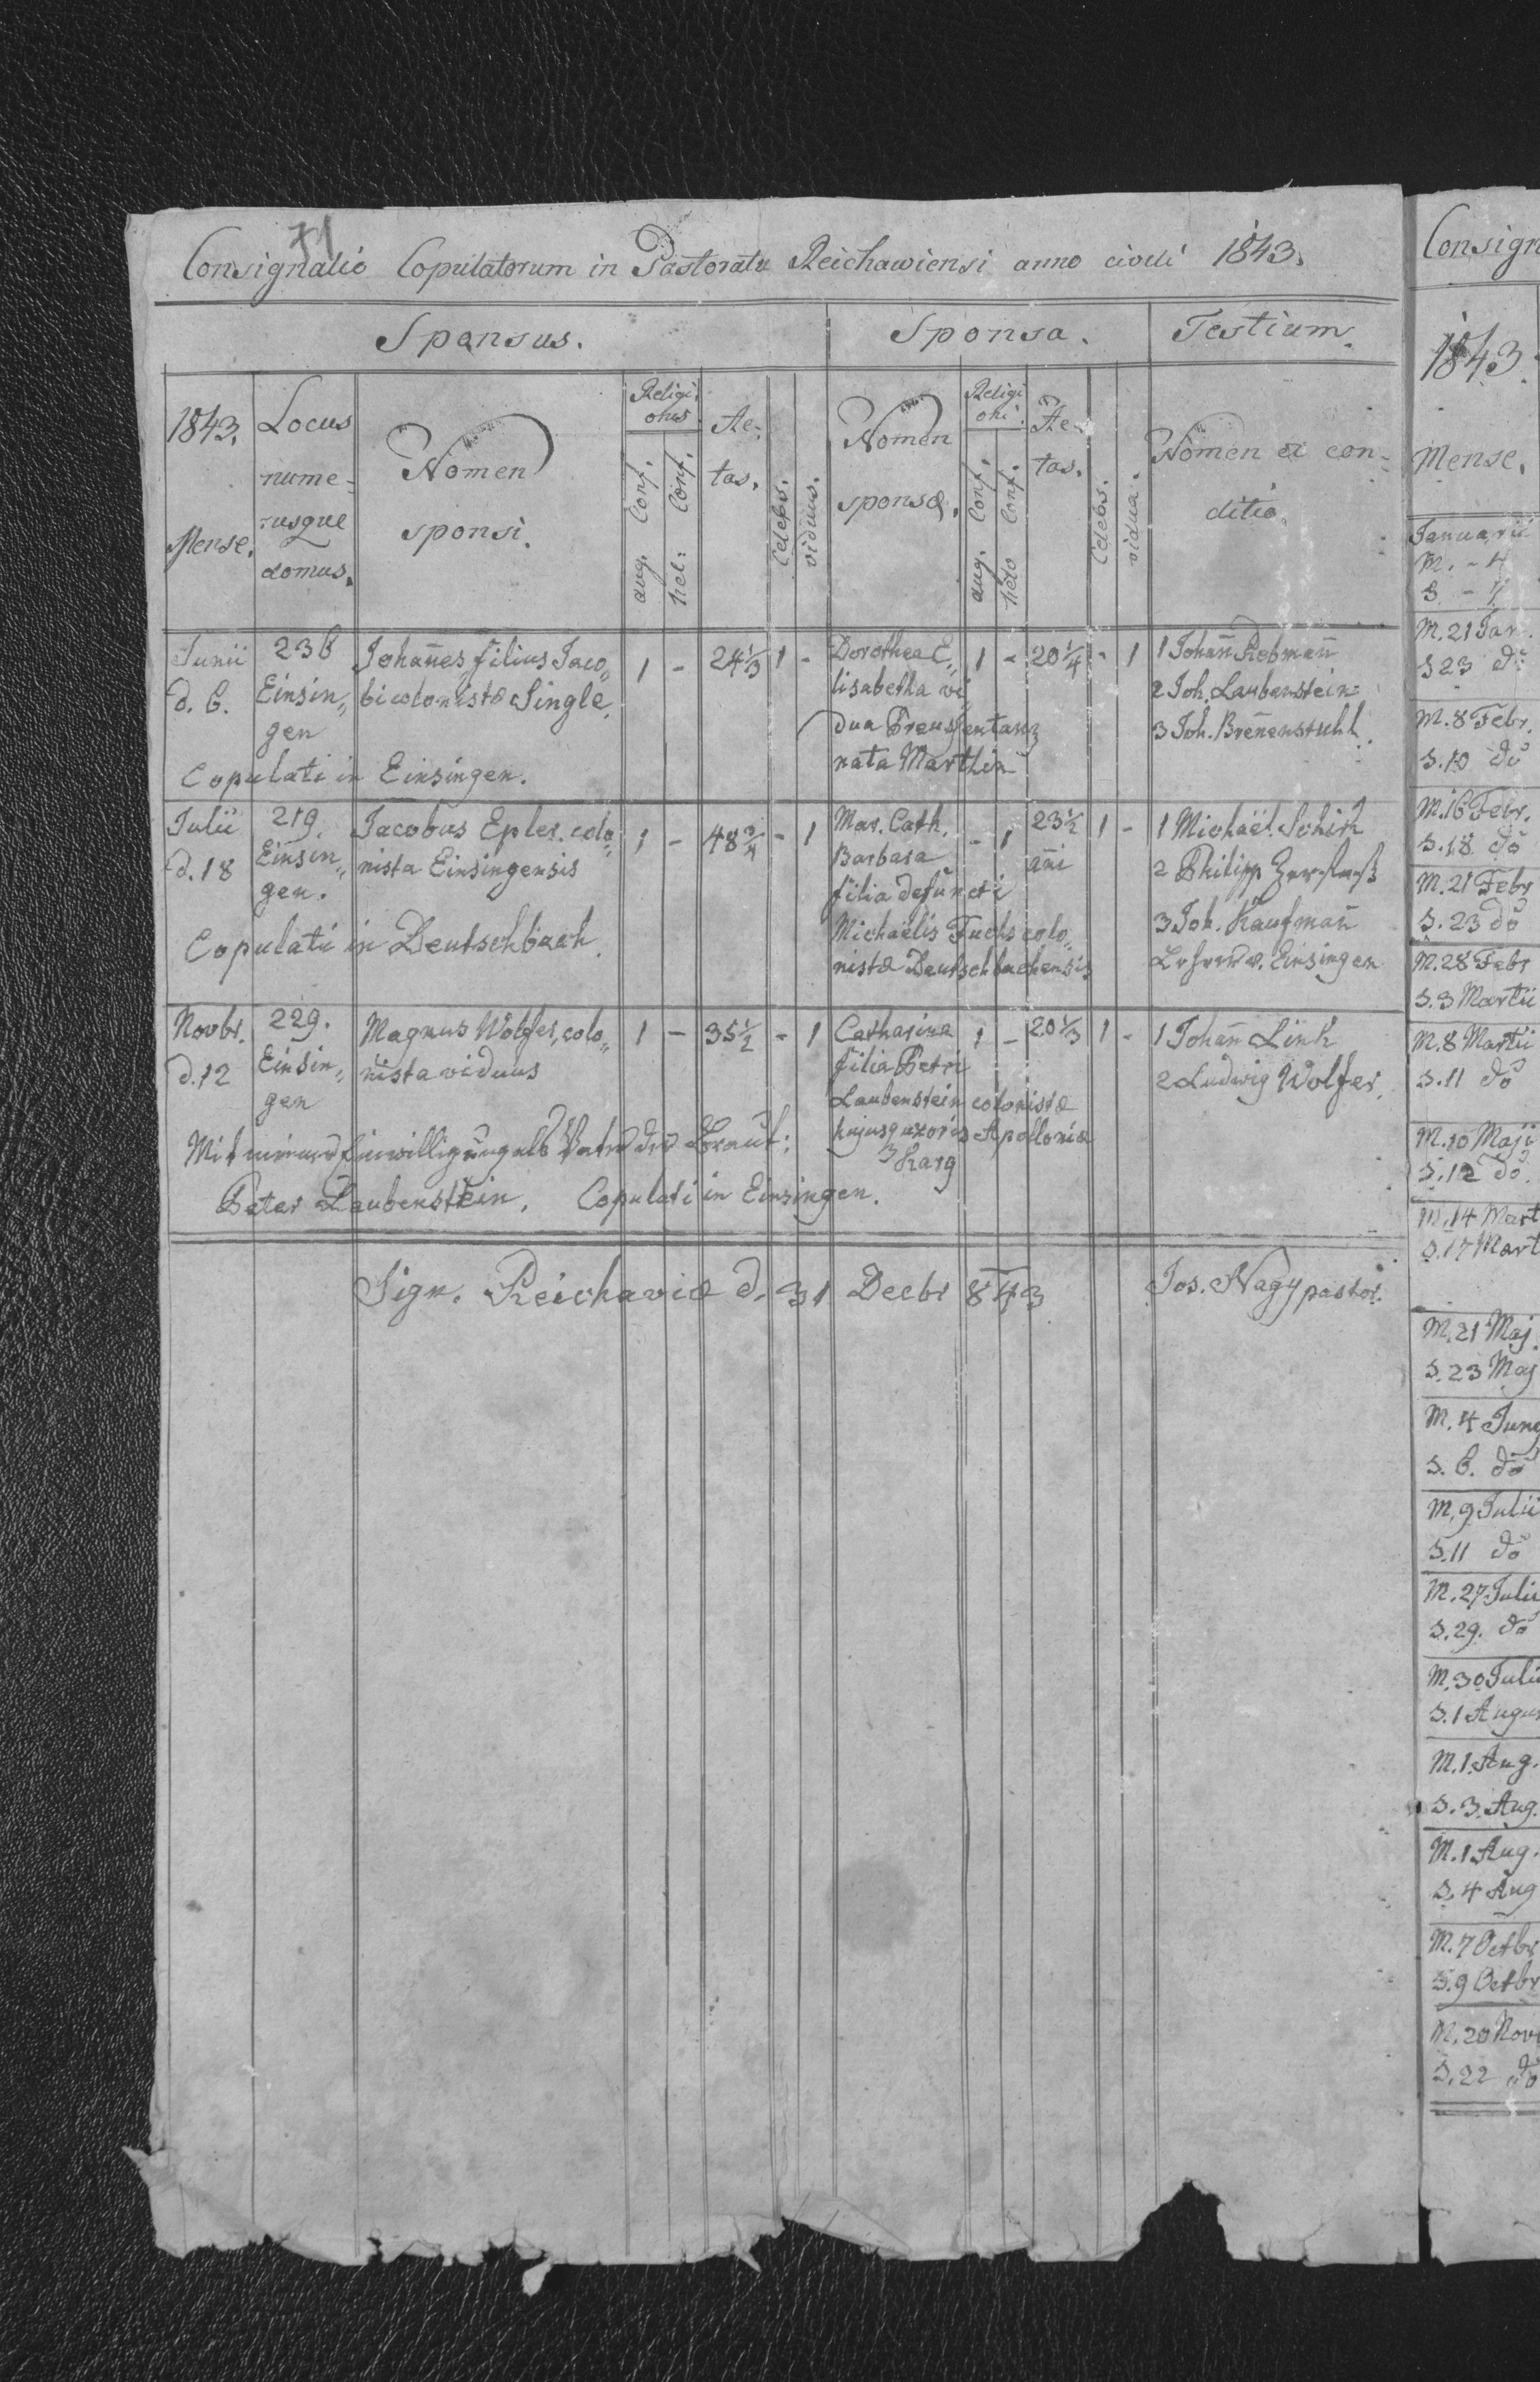 71
Consignatio Copulatorum in Pastoratu Reichawiensi anno civili 1843.
Sponsus. Sponsa. Testium.
1843. Mense.
Locus nume-
rusque
domus.
Nomen
sponsi.
Religi-
onis
aug. Conf.
hel: Conf.
Ae-
tas.
Celebs.
viduus.
Nomen
sponsæ.
Religi
oni
aug. Conf.
helv Conf.
Ae-
tas.
Celebs.
vidua.
Nomen et con-
ditio.
Junii
d. 6.
236
Einsin„
gen
Johañes filius Jaco„
bi colonistæ Single.
1 - 24 1/3 1 -
Dorothea E„
lisabetha vi
dua
nata Marthin
1 - 20 1/4 - 1
1 Johañ Rebmañ
2 Joh. Laubenstein
3 Joh. Breñenstuhl.
Copulati in Einsingen.
Julii
d. 18
219.
Einsin„
gen.
Jacobus Epler. colo„
nista Einsingensis
1 - 48 3/4 - 1
Mar. Cath.
Barbara
filia defuncti
Michaëlis Fuchs colo„
nistæ Deutschbachensis
- 1 23 1/2
añi
1 -
1 Michaël Schick
2 Philipp
3 Joh. Kaufmañ
Lehrer v. Einsingen
Copulati in Deutschbach.
Novbr.
d. 12
229.
Einsin„
gen
Magnus Wolfer, colo„
nista viduus
1 - 35 1/2 - 1
Catharina
filia Petri
Laubenstein colonistæ
hujusq uxoris Apolloniæ
Karg
1 - 20 1/3 1 -
1 Johañ Link
2 Ludwig Wolfer.
Mit meiner Einwilligung als Vater der Braut:
Peter Laubenstein. Copulati in Einsingen.
Sign. Reichaviæ d. 31 Decbr 843 Jos. Nagy pastor.
Consign
1843
Mense.
Januarii
M. - 4
S. - 7
M. 21 Jan.
S 23 do
M. 8 Febr.
S. 10 do
M. 16 Febr.
S. 18 do
M. 21 Febr
S. 23 do
M. 28 Febr
S. 3 Martii
M. 8 Martii
S. 11 do
M. 10 Maji
S. 12 do
M. 14 Mart
S. 17 Mart
M. 21 Maj
S. 23 Maj
M. 4 Juny
S. 6. do
M. 9 Julii
S. 11 do
M. 27 Julii
S. 29. do
M. 30 Julii
S. 1 Augus
M. 1. Aug.
S. 3. Aug.
M. 1 Aug.
S. 4 Aug
M. 7 Octbr
S. 9 Octbr
M. 20 Nov
S. 22 do